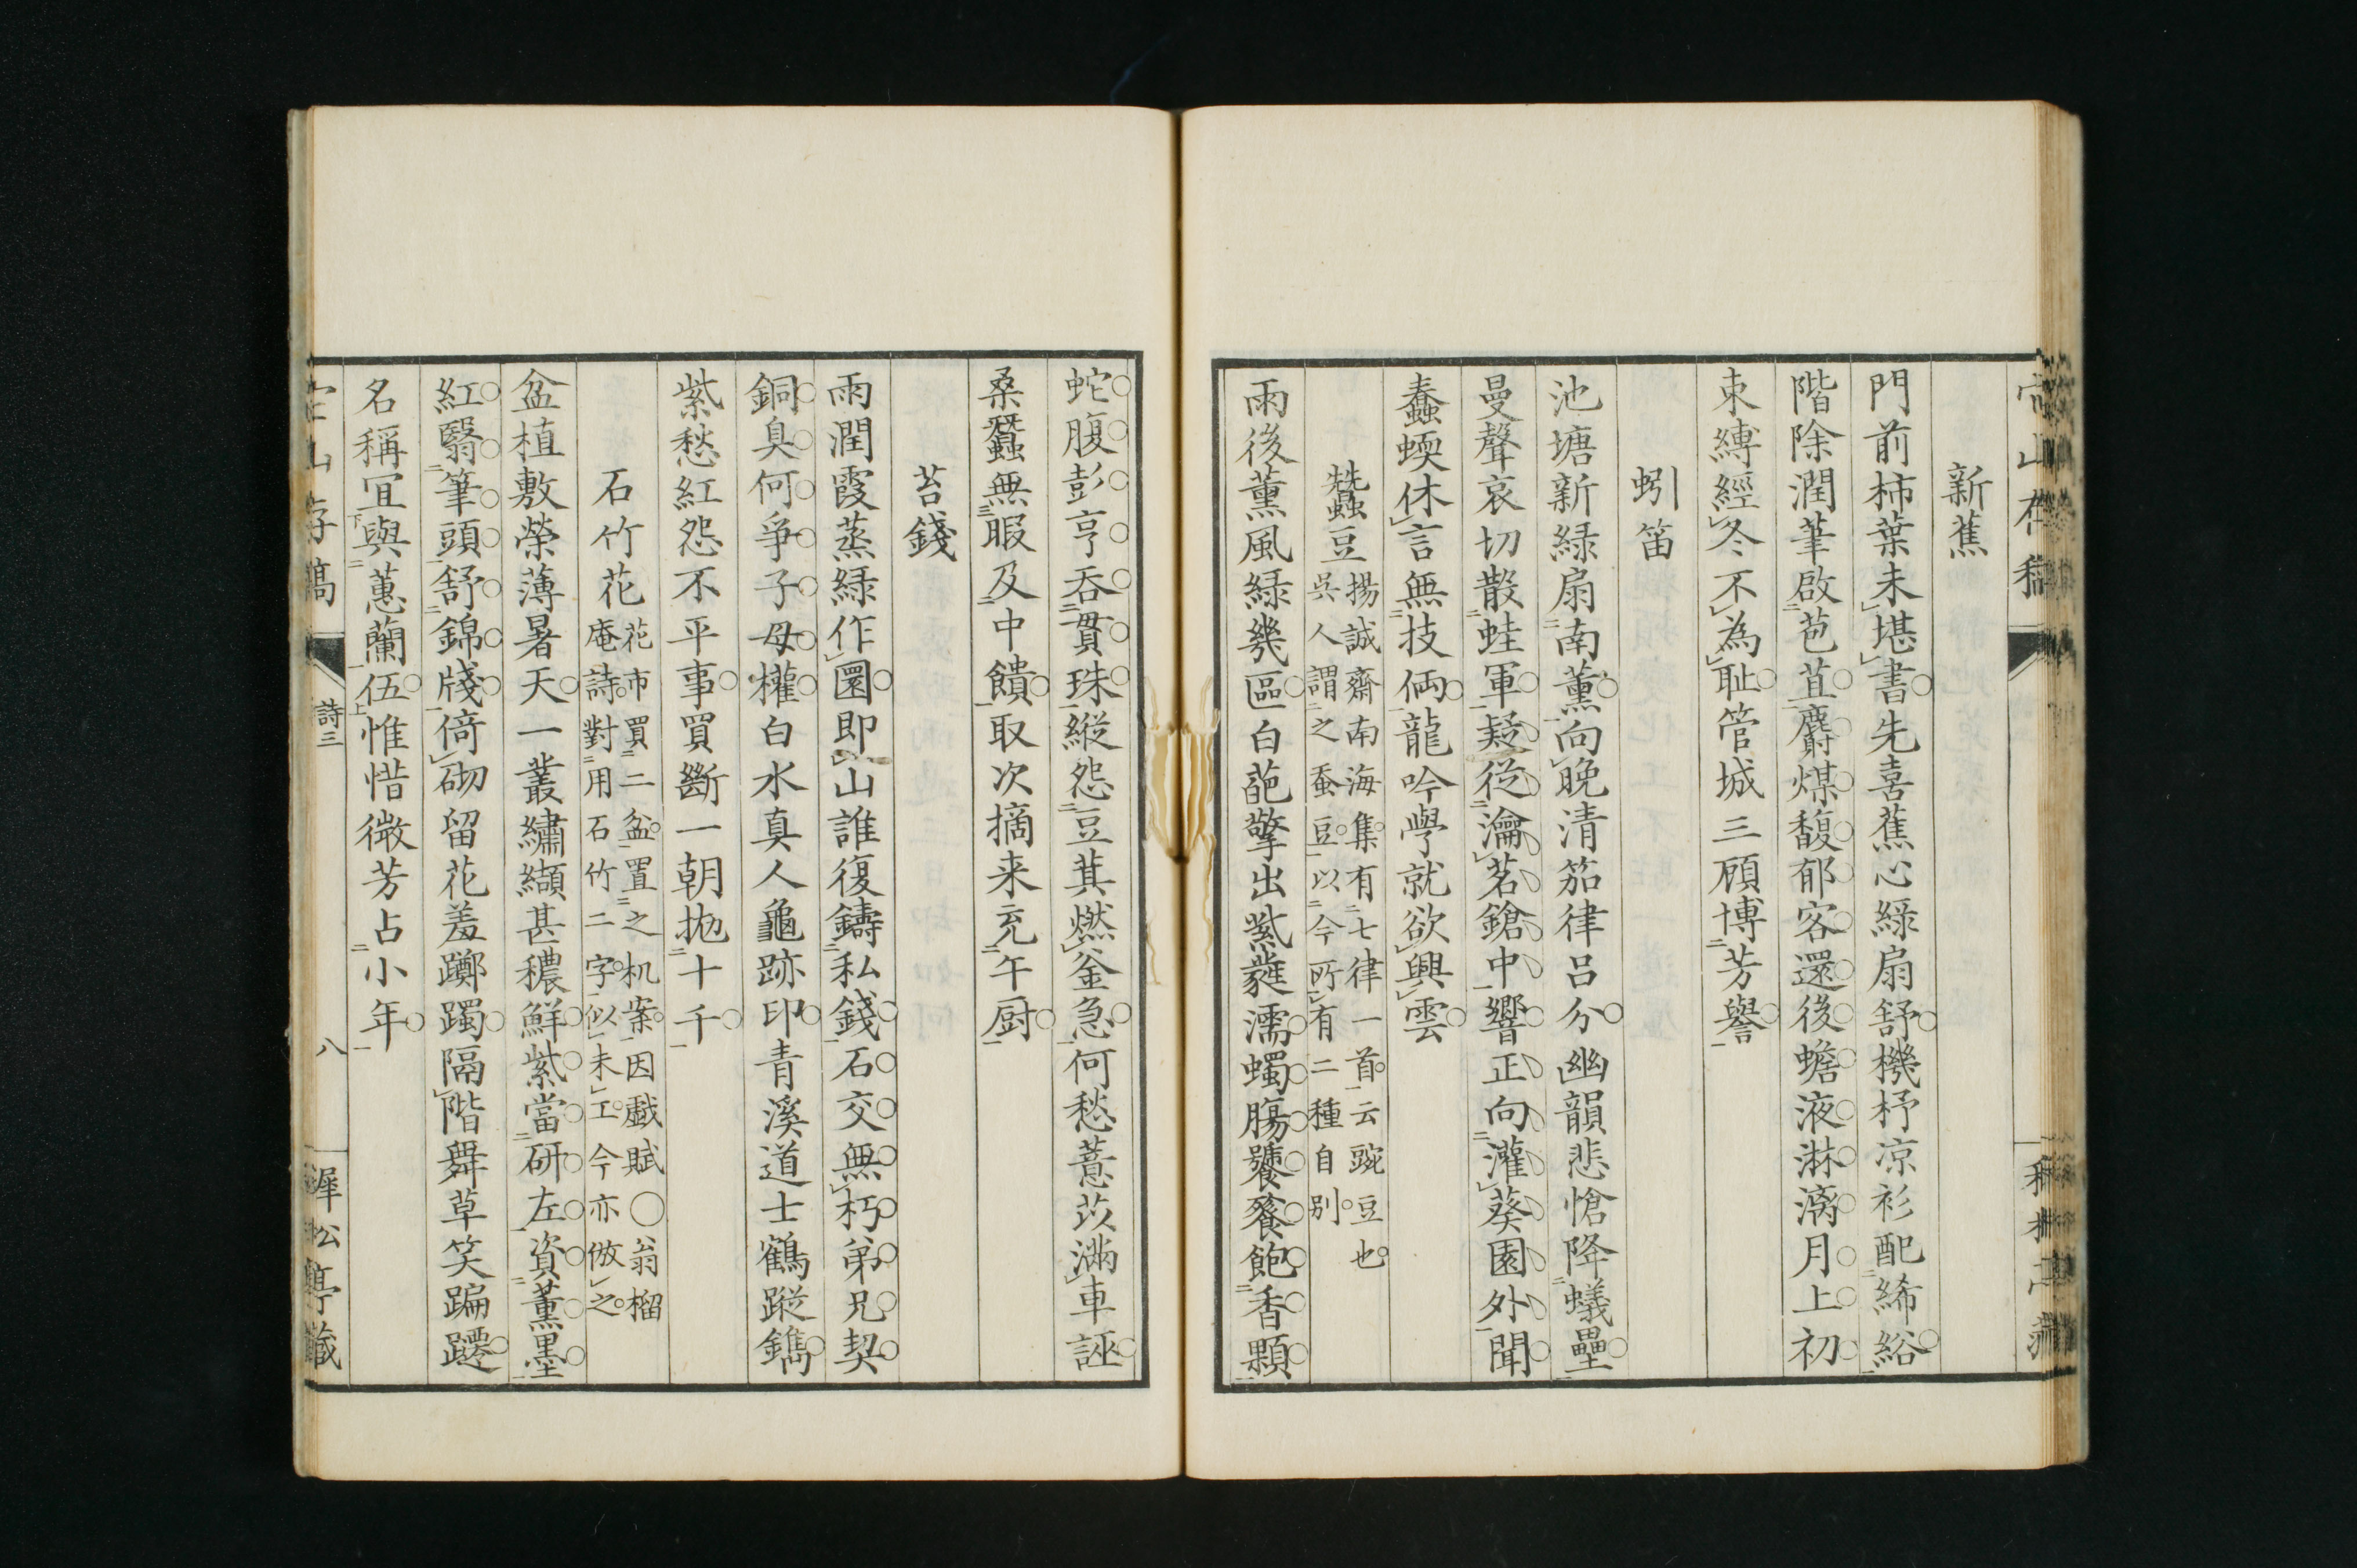 新蕉
門前柿葉未堪書先喜蕉心緑扇舒機杼凉衫配絺綌
階除潤筆啟苞苴麝煤馥郁客還後蟾液淋漓月上初
束縛經冬不為恥管城三顧博芳譽
蚓笛
池塘新緑扇南薫向晩清笳律呂分幽韻悲愴降蟻壘
曼聲哀切散蛙軍疑從瀹茗鎗中響正向灌葵園外聞
蠢蝡休言無技倆龍吟學就欲興雲
蠶豆
揚誠齋南海集有七律一首云豌豆也
吳人謂之蚕豆以今所有二種自別
雨後薫風緑幾區白葩擎出紫蕤濡蠋腸饕餮飽香顆
蛇腹彭亨呑貫珠縱怨豆萁燃釜急何愁薏苡滿車誣
桑蠶無暇及中饋取次摘来充午厨
苔錢
雨潤霞蒸緑作圜即山誰復鑄私錢石交無朽弟兄契
銅臭何爭子母權白水真人龜跡印青溪道士鶴蹤鐫
紫愁紅怨不平事買斷一朝抛十千
石竹花
花市買二盆置之机案因戯賦○翁榴
庵詩對用石竹二字以未工今亦倣之
盆植敷榮薄暑天一叢繡纈甚穠鮮紫當研左資薫墨
紅翳筆頭舒錦牋倚砌留花羞躑躅隔階舞草笑蹁躚
名稱冝與蕙蘭伍惟惜微芳占小年
詩三
八